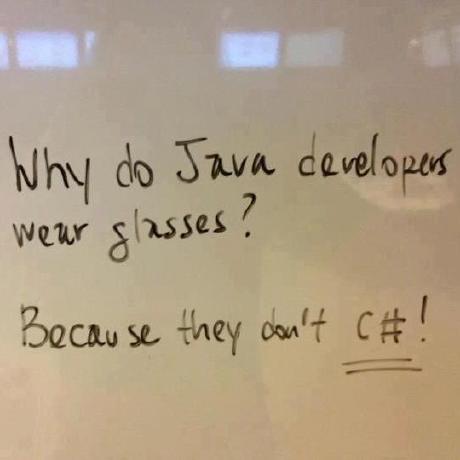 Why do Java developers
wear glasses?
Because they don't C#!